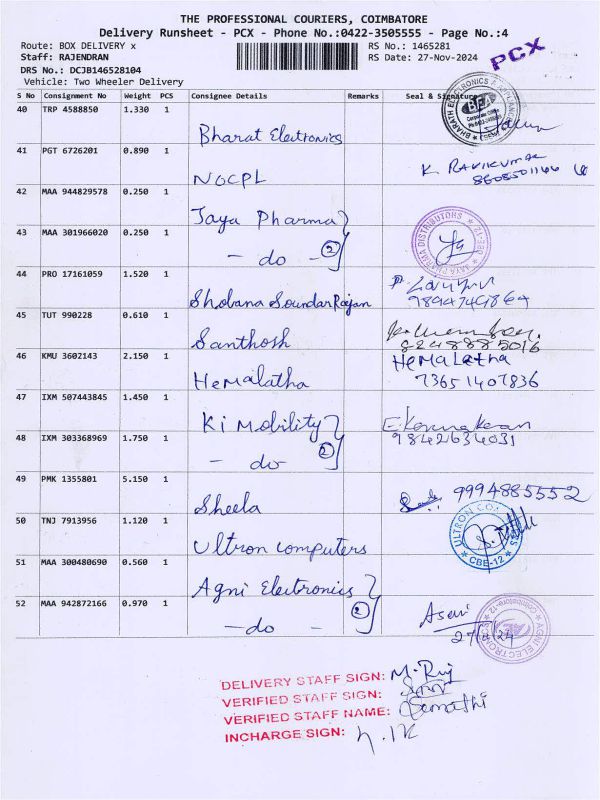 THE PROFESSIONAL COURIERS, COIMBATORE
Delivery Runsheet - PCX - Phone No.:0422-3505555 - Page No.:4
Route: BOX DELIVERY x
RS No.: 1465281
Staff: RAJENDRAN
RS Date: 27-Nov-2024
PCX
DRS No.: DCJB146528104
Vehicle: Two Wheeler Delivery
S No Consignment No Weight PCS Consignee Details Remarks Seal & Signature
40 TRP 4588850 1.330 1
Bharat Electronics
41 PGT 6726201 0.890 1
NGCPL
K. RAVIKUMAR
42 MAA 944829578 0.250 1
Jaya Pharma
JAYA PHARMA DISTRIBUTORS
CBE-12
43 MAA 301966020 0.250 1
- do - 2
44 PRO 17161059 1.520 1
Shobana SoundarRajan
45 TUT 990228 0.610 1
Santhosh
8248885016
46 KMU 3602143 2.150 1
Hemalatha
Hemalatha
73651407836
47 IXM 507443845 1.450 1
Ki Mobility
48 IXM 303368969 1.750 1
- do - 2
9842634031
49 PMK 1355801 5.150 1
Sheela
9994885552
50 TNJ 7913956 1.120 1
Ultron computers
ULTRON COM
CBE-12
51 MAA 300480690 0.560 1
Agni Electronics
52 MAA 942872166 0.970 1
- do - 2
AGNI ELECTRONICS
Coimbatore-12
DELIVERY STAFF SIGN: M. Raj
VERIFIED STAFF SIGN:
VERIFIED STAFF NAME: Sumathi
INCHARGE SIGN: